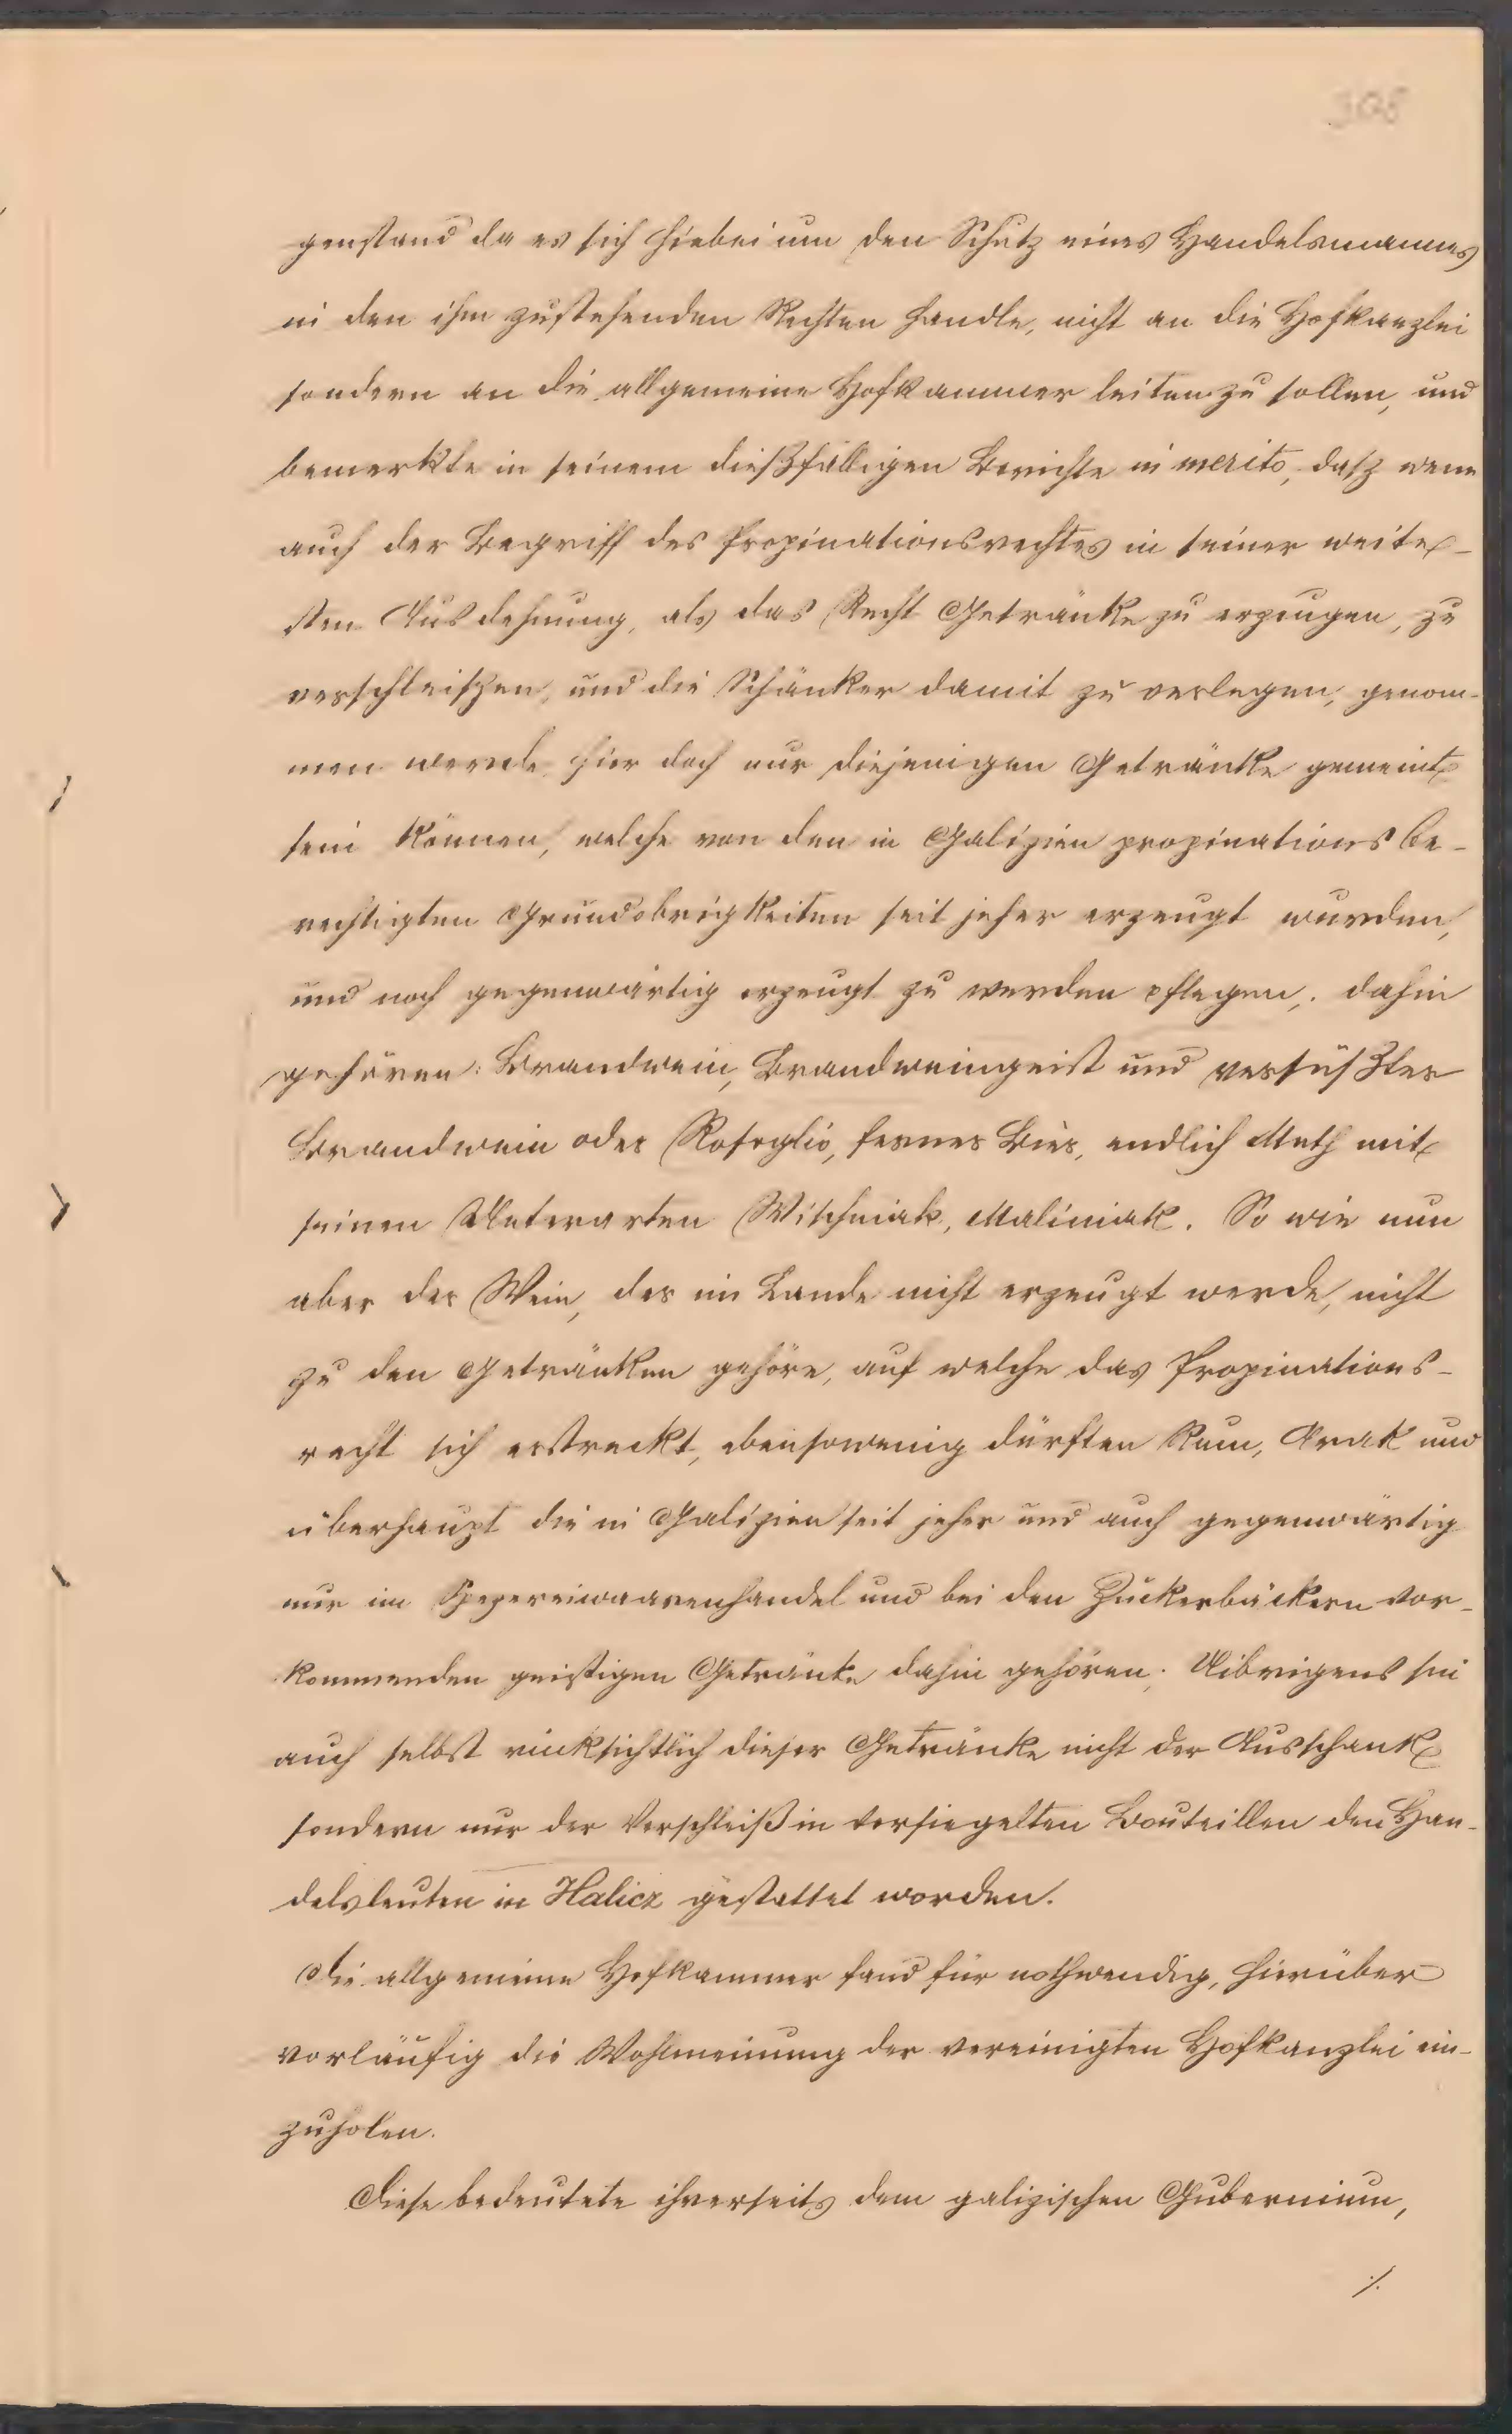 308
genstand da es sich hiebei um den Schutz eines Handelsmannes
in den ihm zustehenden Rechten handle, nicht an die Hofkanzlei
sondern an die allgemeine Hofkammer leiten zu sollen, und
bemerkte in seinem dießfälligen Berichte in merito, daß wenn
auch der Begriff des Propinationsrechtes in seiner weite-
sten Ausdehnung, als das Recht Getränke zu erzeugen, zu
verschleißen, und die Schänker damit zu verlegen, genom-
men werde hier doch nur diejenigen Getränke gemeint
sein können, welche von den in Galizien propinationsbe-
rechtigten Grundobrigkeiten seit jeher erzeugt wurden,
und noch gegenwärtig erzeugt zu werden pflegen; dahin
gehören: Brandwein, Brandweingeist und versüßter
Brandwein oder Rosoglio, ferner Bier, endlich Meth mit
seinen Unterarten Wischniak, Maliniak. So wie nun
aber der Wein, der im Lande nicht erzeugt werde, nicht
zu den Getränken gehöre, auf welche das Propinations-
recht sich erstreckt, ebensowenig dürften Rum, Arak und
überhaupt die in Galizien seit jeher und auch gegenwärtig
nur im Spezereiwaarenhandel und bei den Zuckerbäckern vor-
kommenden geistigen Getränke dahin gehören. Uibrigens sei
auch selbst rücksichtlich dieser Getränke nicht der Ausschank
sondern nur der Verschleiß in versiegelten Bouteillen den Han-
delsleuten in Halicz gestattet worden.
Die allgemeine Hofkammer fand für nothwendig, hierüber
vorläufig die Wohlmeinung der vereinigten Hofkanzlei ein-
zuholen.
Diese bedeutete ihrerseits dem galizischen Gubernium,
./.